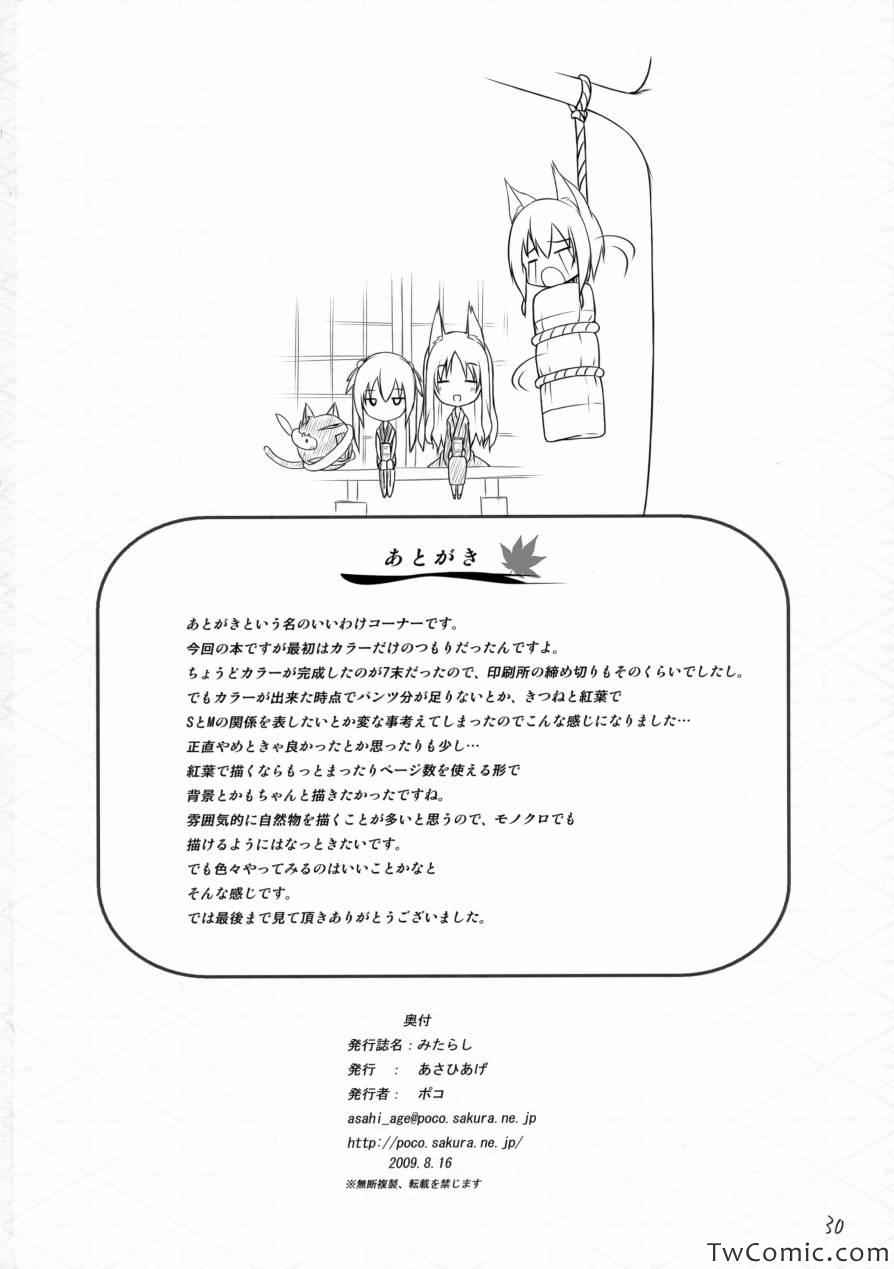 あとがき
あとがきという名のいいわけコーナーです。
今回の本ですが最初はカラーだけのつもりだったんですよ。
ちょうどカラーが完成したのが7末だったので、印刷所の締め切りもそのくらいでしたし。
でもカラーが出来た時点でパンツ分が足りないとか、きつねと紅葉で
SとMの関係を表したいとか変な事考えてしまったのでこんな感じになりました…
正直やめときゃ良かったとか思ったりも少し…
紅葉で描くならもっとまったりページ数を使える形で
背景とかもちゃんと描きたかったですね。
雰囲気的に自然物を描くことが多いと思うので、モノクロでも
描けるようにはなっときたいです。
でも色々やってみるのはいいことかなと
そんな感じです。
では最後まで見て頂きありがとうございました。
奥付
発行誌名：みたらし
発行　：　あさひあげ
発行者：　ポコ
asahi_age@poco.sakura.ne.jp
http://poco.sakura.ne.jp/
2009.8.16
※無断複製、転載を禁じます
30
TwComic.com